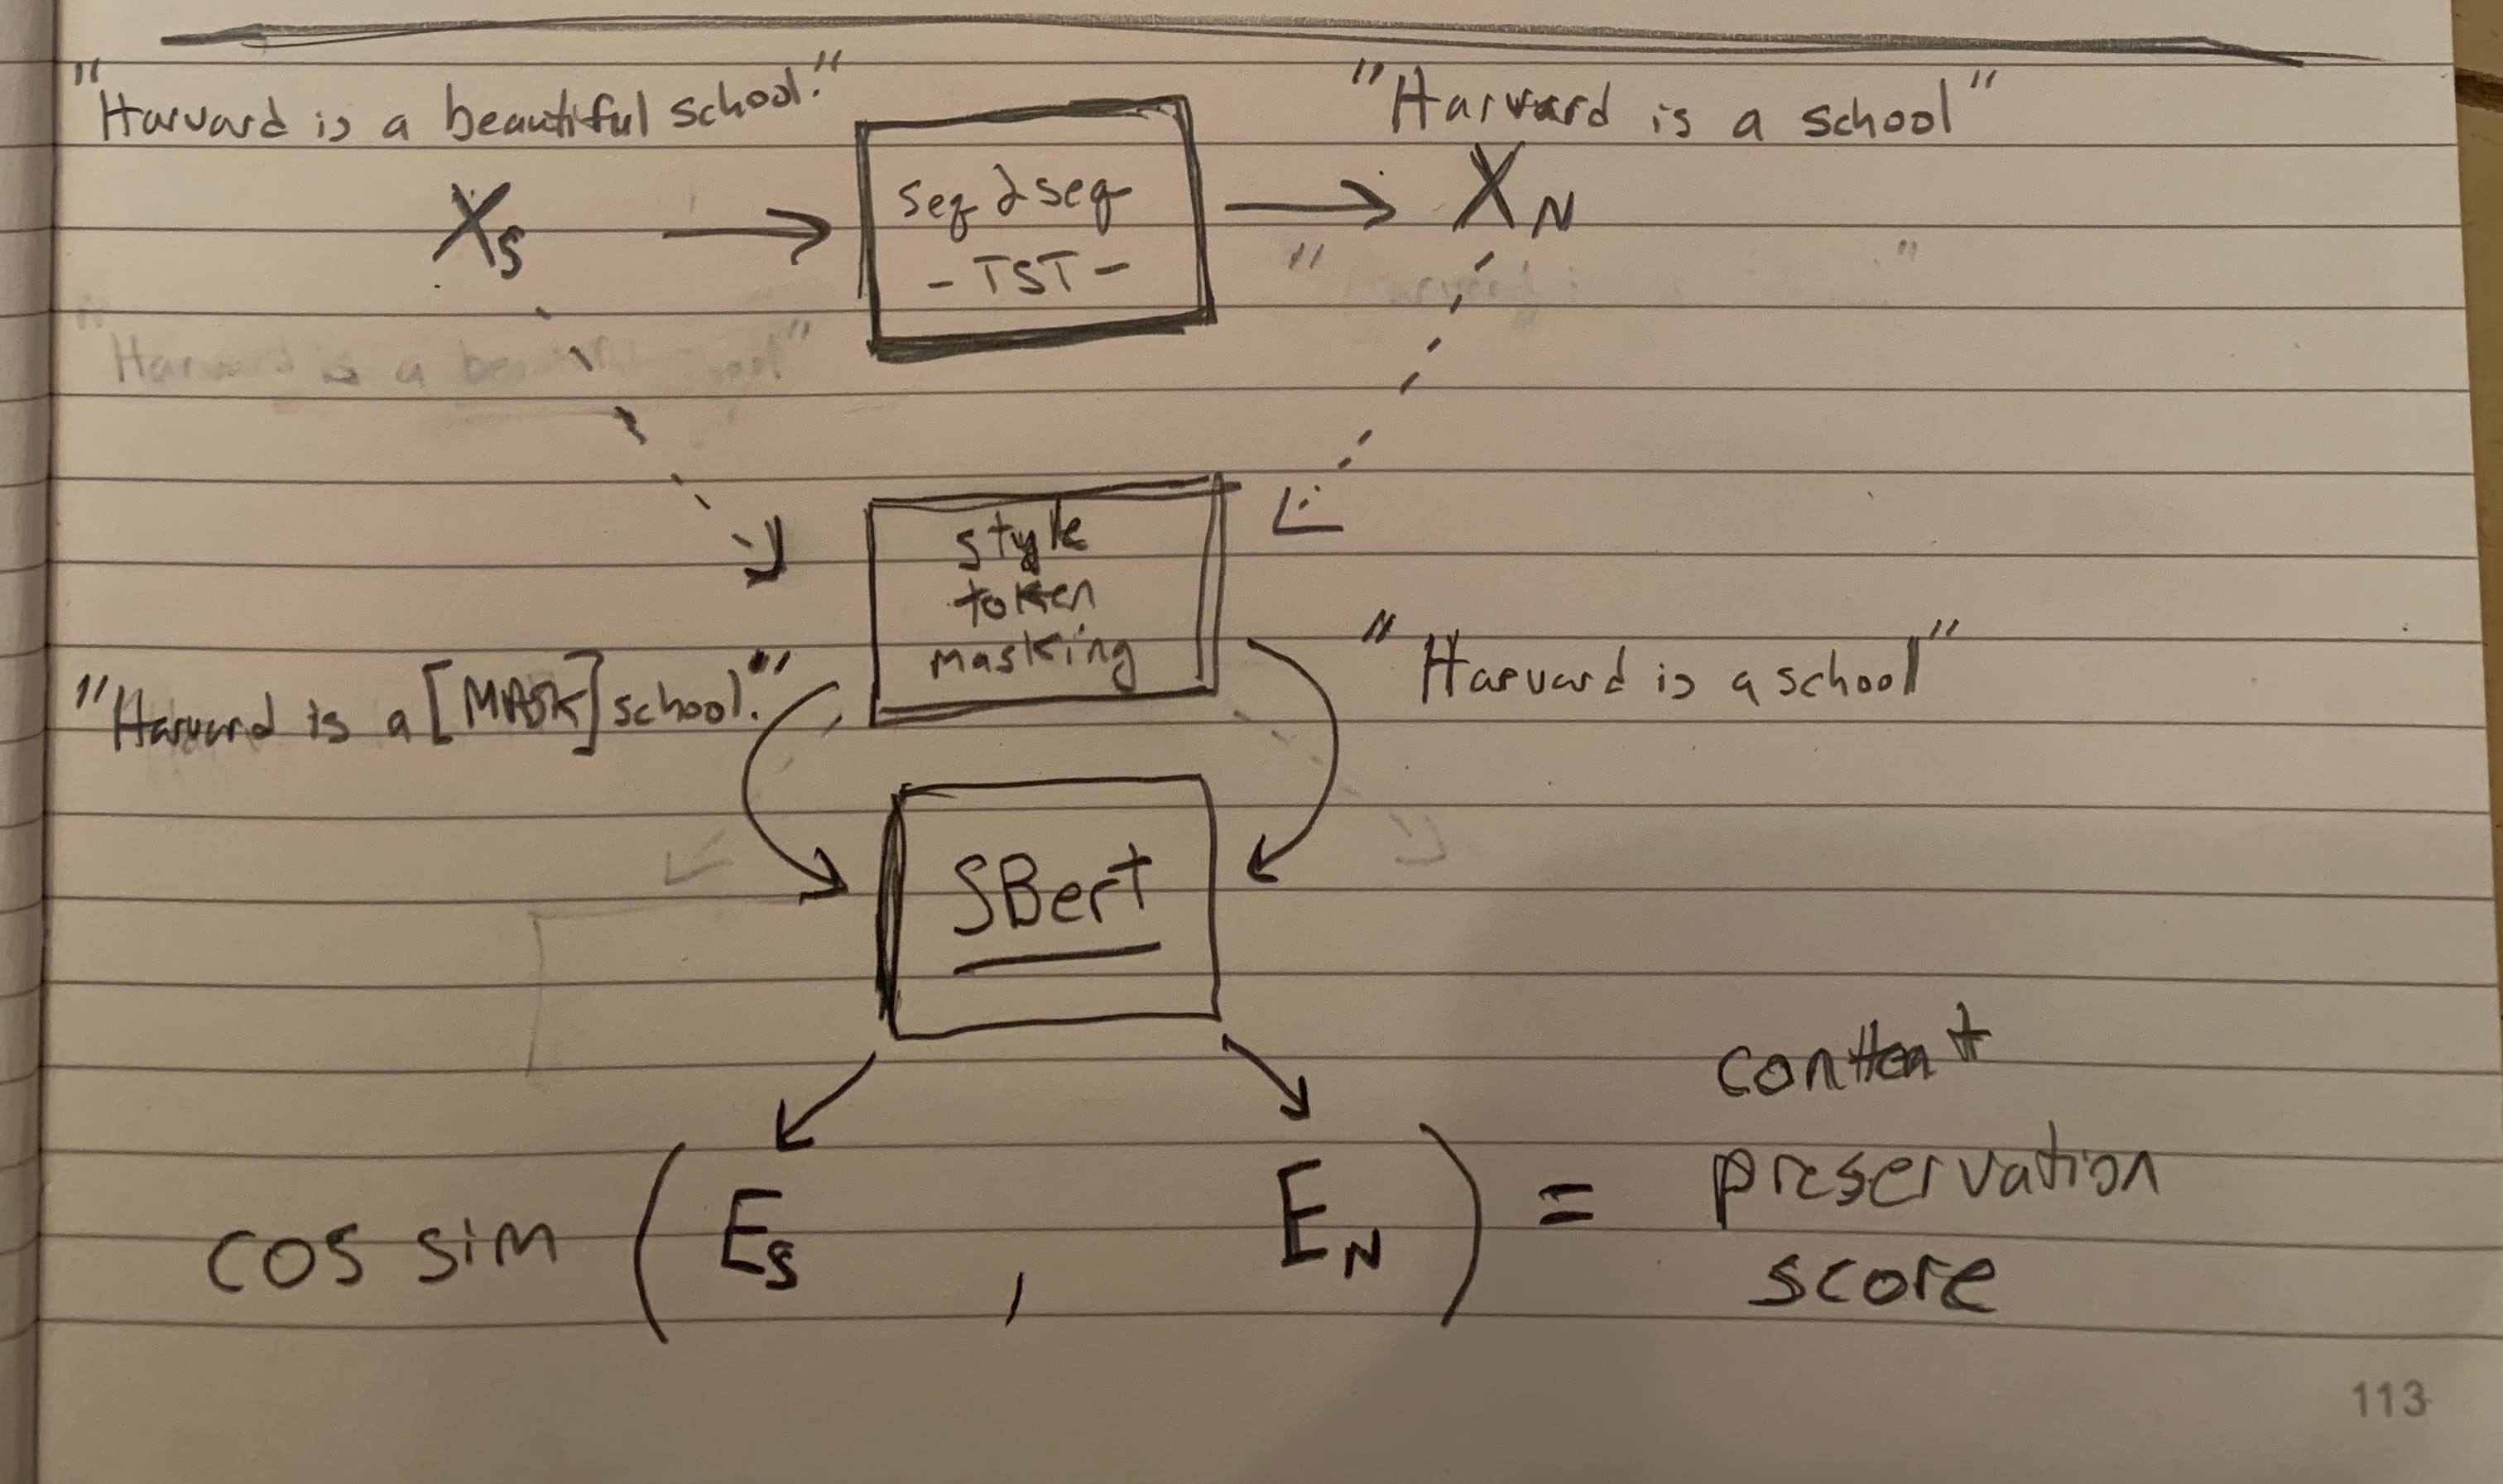 "Harvard is a beautiful school."
"Harvard is a school"
XS
seq2seq
- TST -
XN
"Harvard is a
style
token
masking
"Harvard is a [MASK] school."
"Harvard is a school"
SBert
cos sim ( ES , EN ) =
content
preservation
score
113